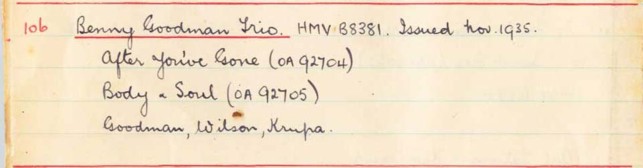 106 Benny Goodman Trio. HMV B8381. Issued Nov. 1935.
After You've Gone (OA 92704)
Body & Soul (OA 92705)
Goodman, Wilson, Krupa.